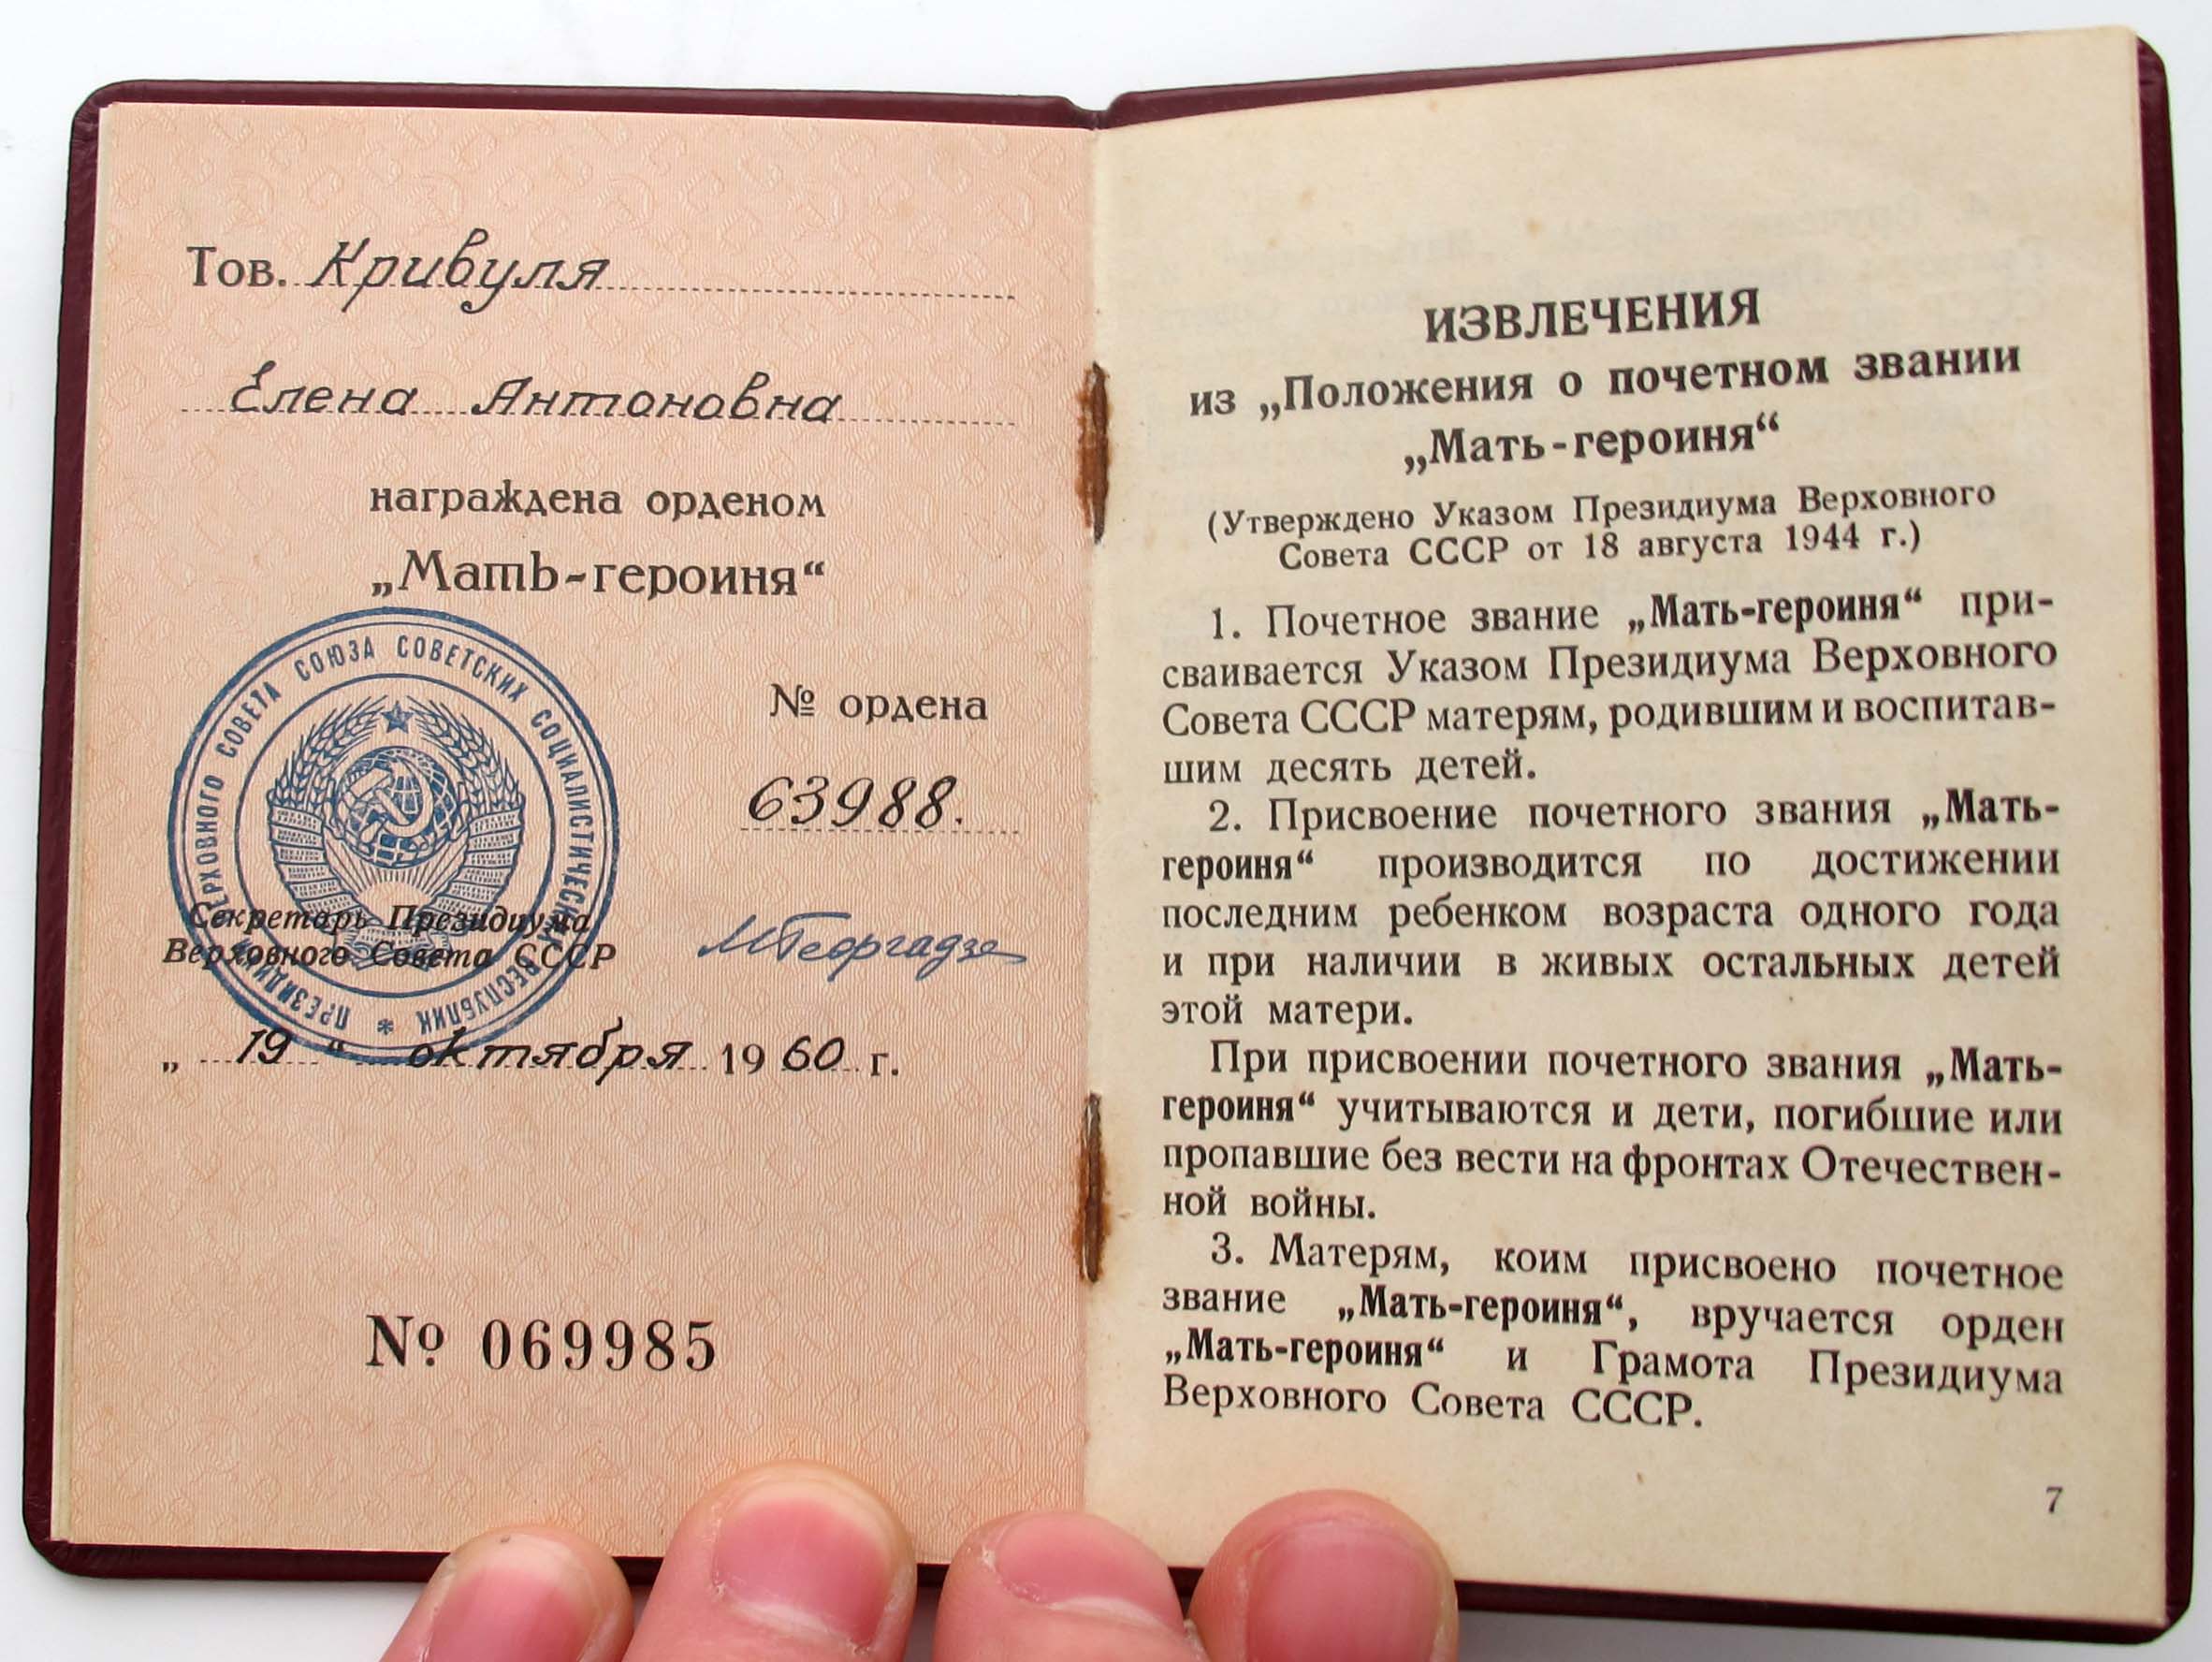 Тов. Кривуля
Елена Антоновна
награждена орденом
„Мать-героиня“
№ ордена
63988.
ПРЕЗИДИУМ ВЕРХОВНОГО СОВЕТА СОЮЗА СОВЕТСКИХ СОЦИАЛИСТИЧЕСКИХ РЕСПУБЛИК *
Секретарь Президиума
Верховного Совета СССР
МГеоргадзе
„ 19 “ октября 1960 г.
№ 069985
ИЗВЛЕЧЕНИЯ
из „Положения о почетном звании
„Мать-героиня“
(Утверждено Указом Президиума Верховного
Совета СССР от 18 августа 1944 г.)
1. Почетное звание „Мать-героиня“ при-
сваивается Указом Президиума Верховного
Совета СССР матерям, родившим и воспитав-
шим десять детей.
2. Присвоение почетного звания „Мать-
героиня“ производится по достижении
последним ребенком возраста одного года
и при наличии в живых остальных детей
этой матери.
При присвоении почетного звания „Мать-
героиня“ учитываются и дети, погибшие или
пропавшие без вести на фронтах Отечествен-
ной войны.
3. Матерям, коим присвоено почетное
звание „Мать-героиня“, вручается орден
„Мать-героиня“ и Грамота Президиума
Верховного Совета СССР.
7